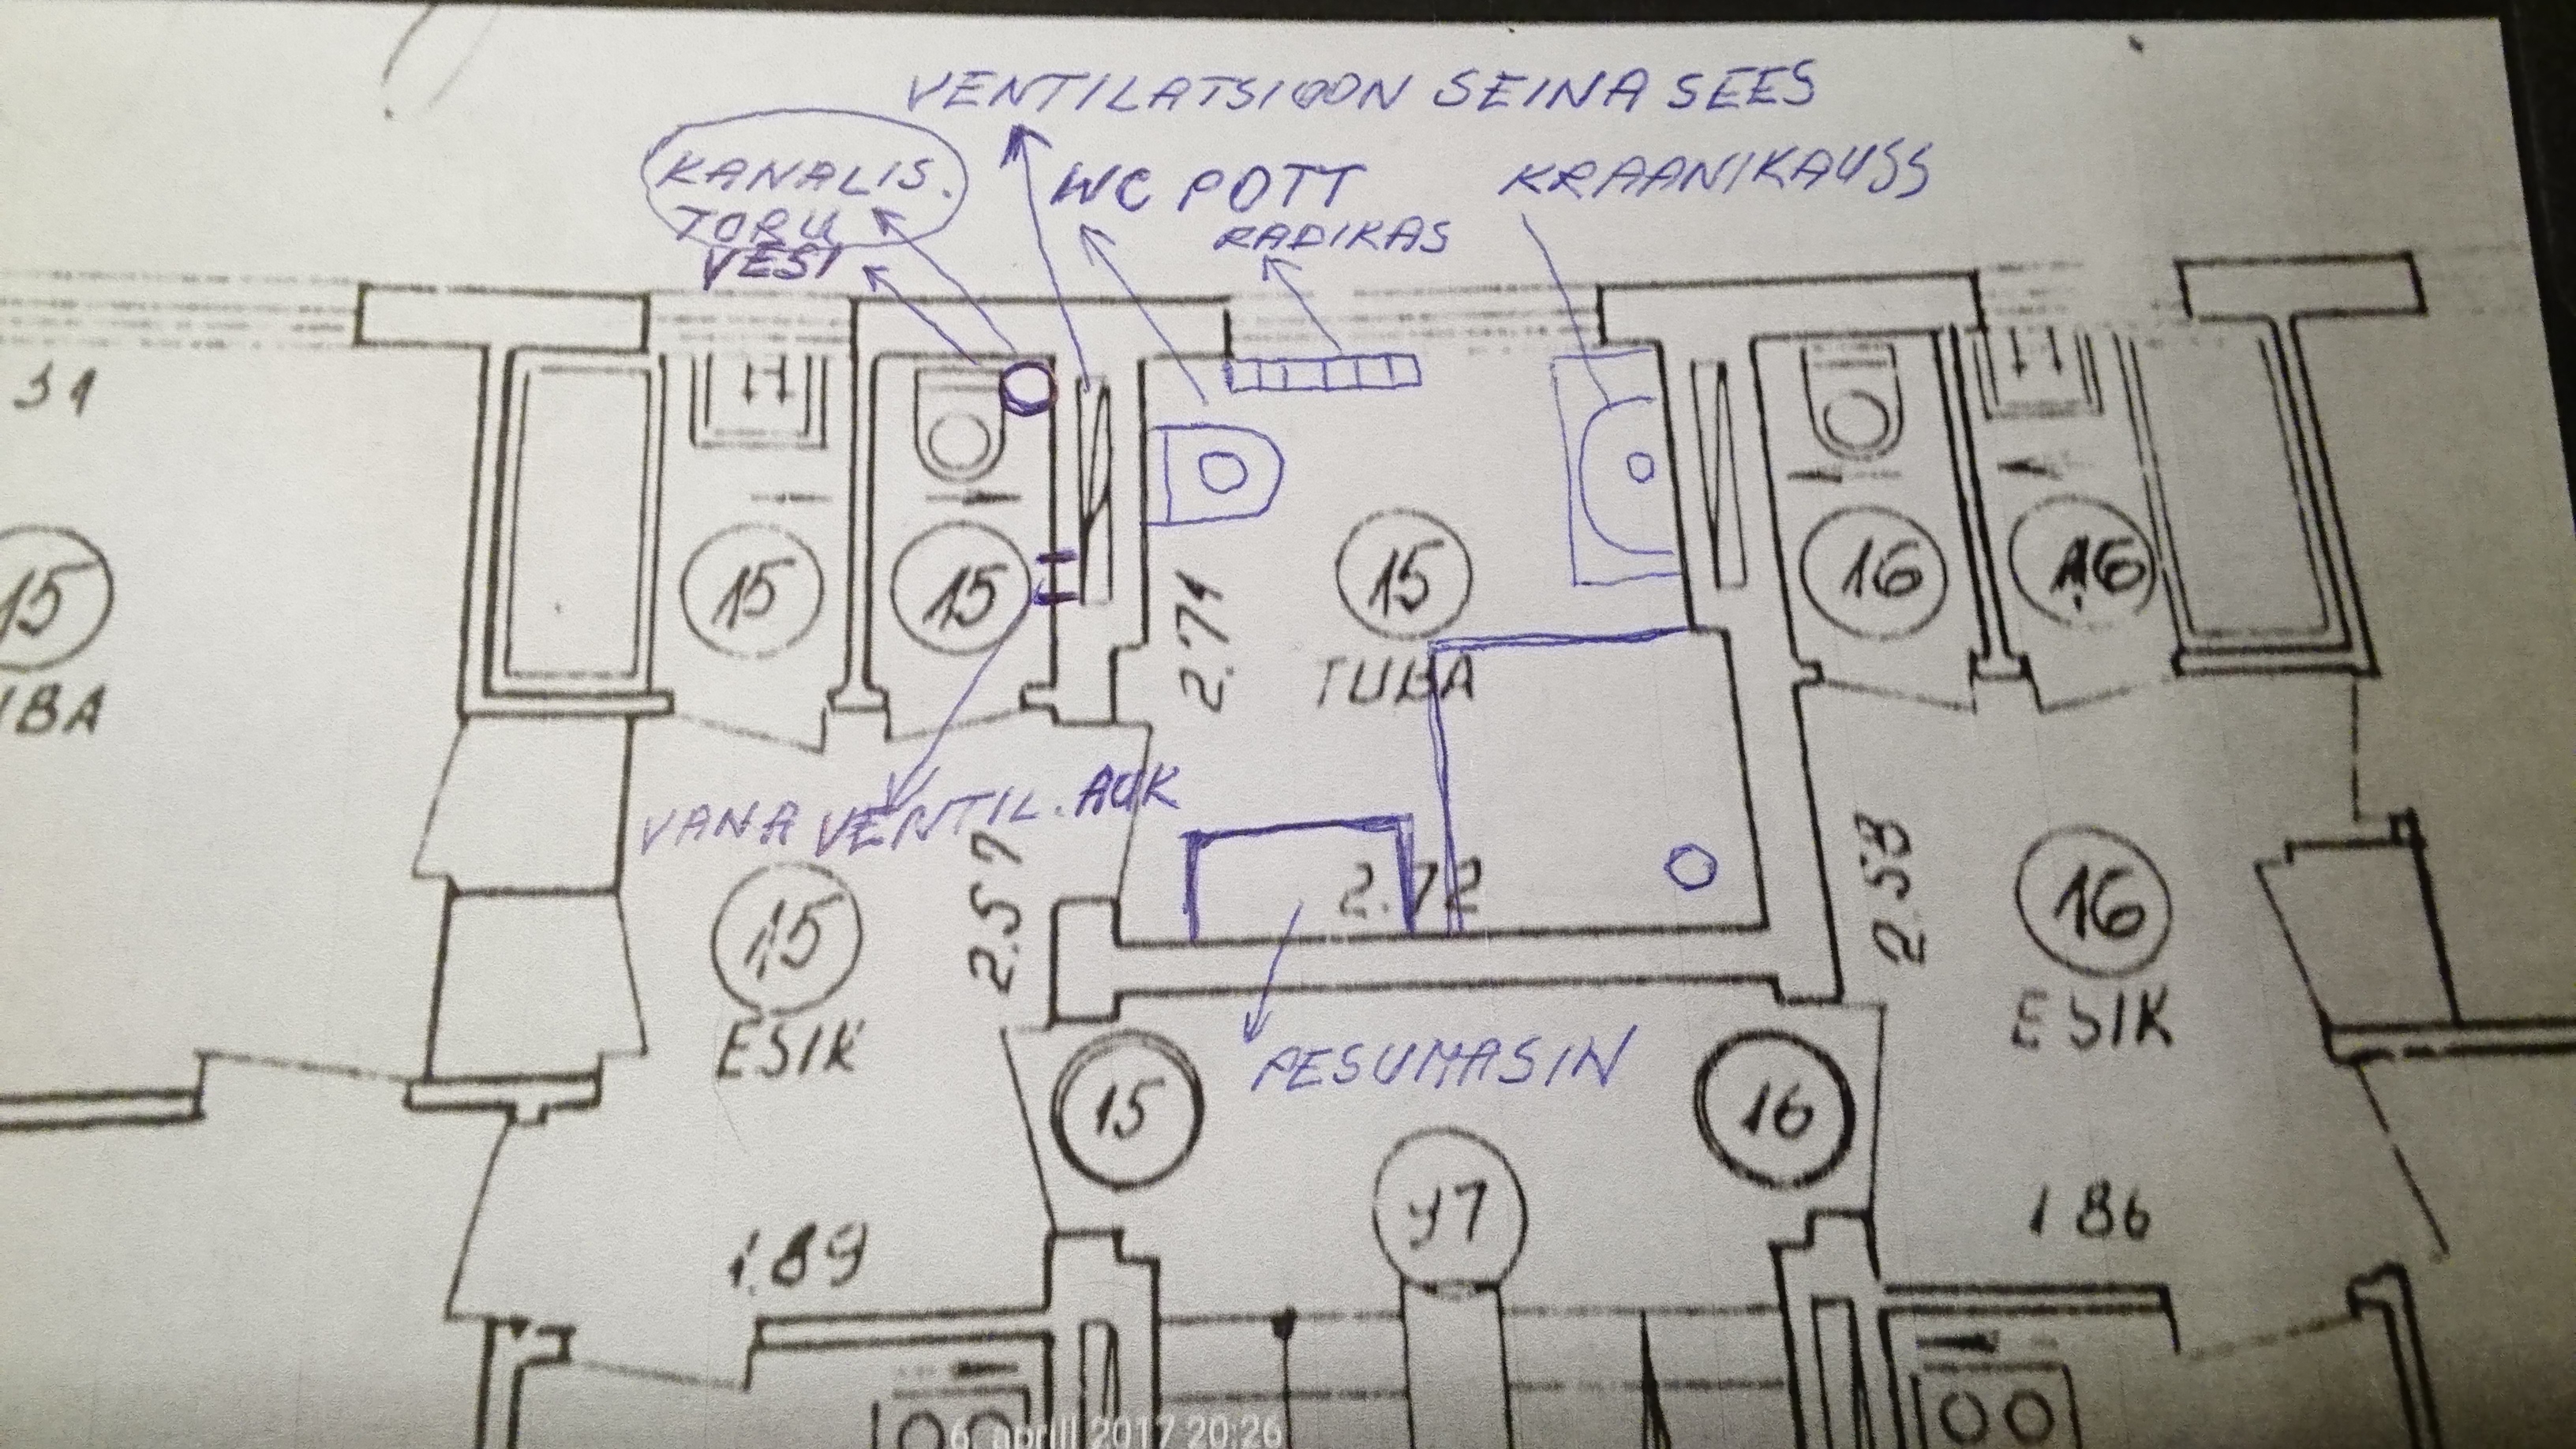 VENTILATSIOON SEINA SEES
KANALIS.
TORU
VESI
WC POTT
RADIKAS
KRAANIKAUSS
31
15
15
15
15
16
16
TUBA
2.71
VANA VENTIL. AUK
2.72
2.57
2.58
15
ESIK
16
ESIK
PESUMASIN
15
16
1.89
186
6. aprill 2017 20:26